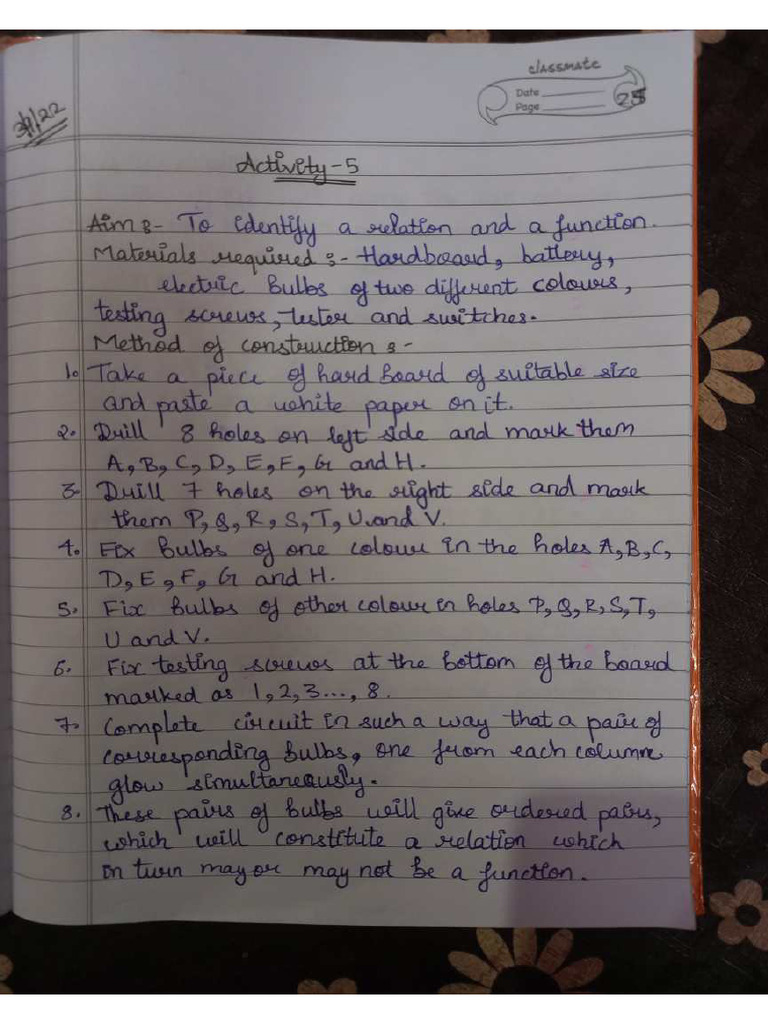 classmate
Date
Page
25
Activity-5
Aim :- To identify a relation and a function.
Materials required :- Hardboard, battery,
electric Bulbs of two different colours,
testing screws, tester and switches.
Method of construction :-
1. Take a piece of hard board of suitable size
and paste a white paper on it.
2. Drill 8 holes on left side and mark them
A, B, C, D, E, F, G and H.
3. Drill 7 holes on the right side and mark
them P, Q, R, S, T, U and V.
4. Fix Bulbs of one colour in the holes A, B, C,
D, E, F, G and H.
5. Fix Bulbs of other colour in holes P, Q, R, S, T,
U and V.
6. Fix testing screws at the bottom of the board
marked as 1, 2, 3..., 8.
7. Complete circuit in such a way that a pair of
corresponding Bulbs, one from each column
glow simultaneously.
8. These pairs of bulbs will give ordered pairs,
which will constitute a relation which
in turn may or may not be a function.